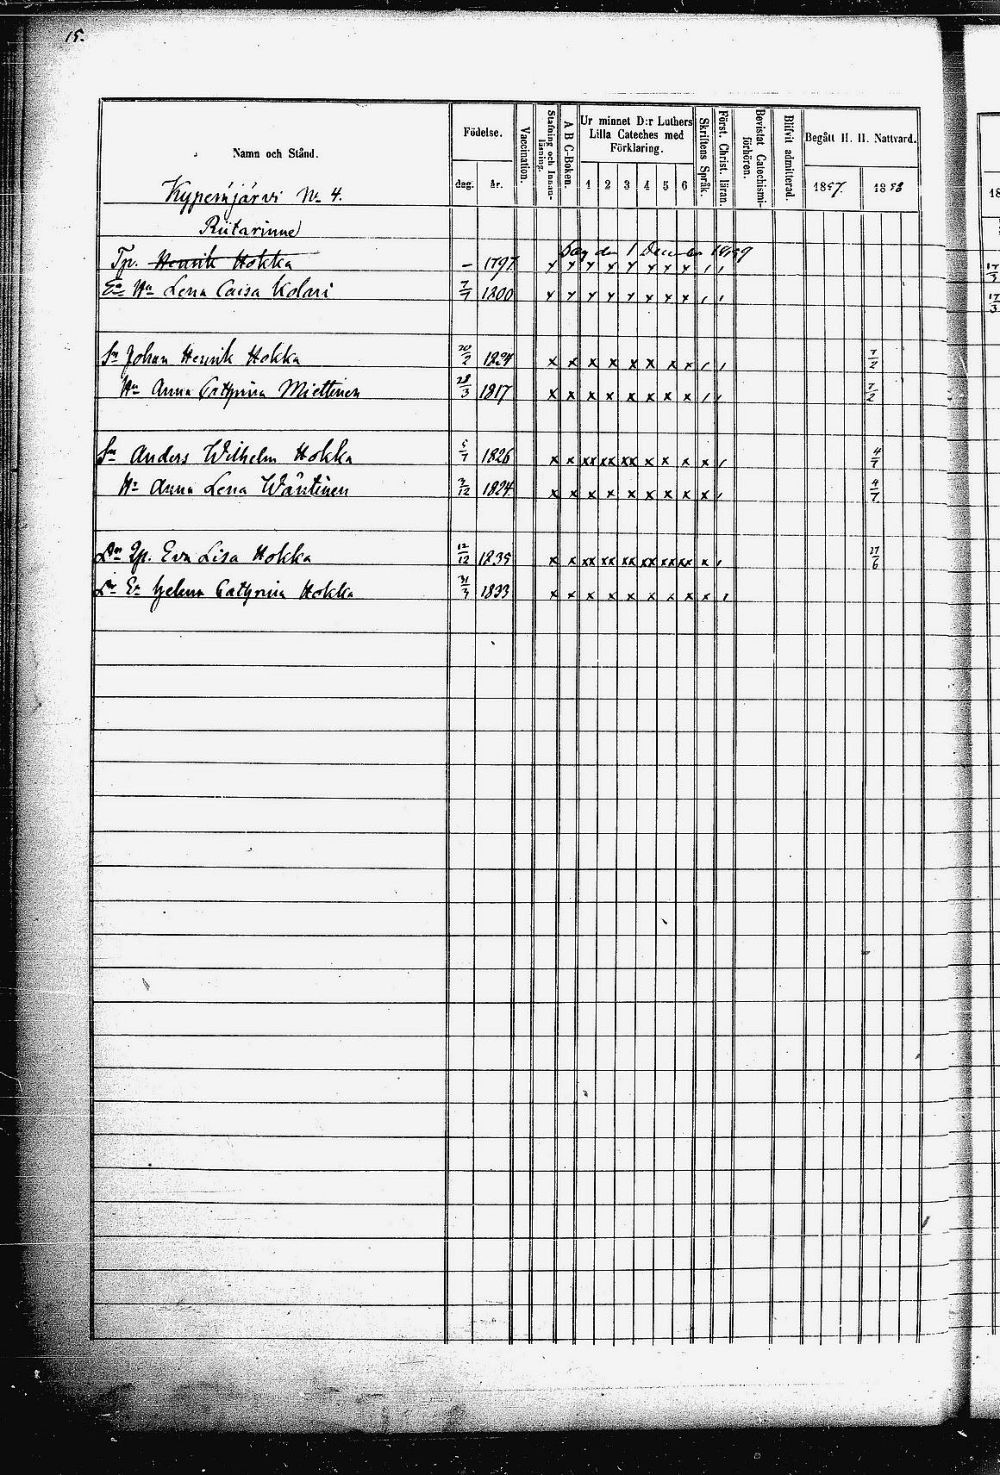 15.
Namn och Stånd.
Födelse.
dag. år.
Vaccination.
Stafning och Innan-läsning.
A B C-Boken.
Ur minnet D:r Luthers Lilla Cateches med Förklaring.
1 2 3 4 5 6
Skriftens Språk.
Först. Christ. läran.
Bevistat Catechismi-förhören.
Blifvit admitterad.
Begått H. H. Nattvard.
1857. 1858
Kypenjärvi No 4.
Riitarinne
Tp. Henrik Hokka — 1797 x x x x x x x x / /
Hu Lena Caisa Kolari 1800 x x x x x x x x / /
Sn Johan Henrik Hokka 20/2 1824 x x x x x x x x / / 7/2
Hu Anna Cathrina Miettinen 28/3 1817 x x x x x x x x / / 7/2
Sn Anders Wilhelm Hokka 1826 x x xx xx xx x x x x / 4/7
Hu Anna Lena Wäntinen 2/12 1824 x x x x x x x x x / 4/7
Dr Eva Lisa Hokka 12/12 1835 x x xx xx xx xx xx xx x / 27/6
Helena Cathrina Hokka 31/3 1833 x x x x x x x x x /